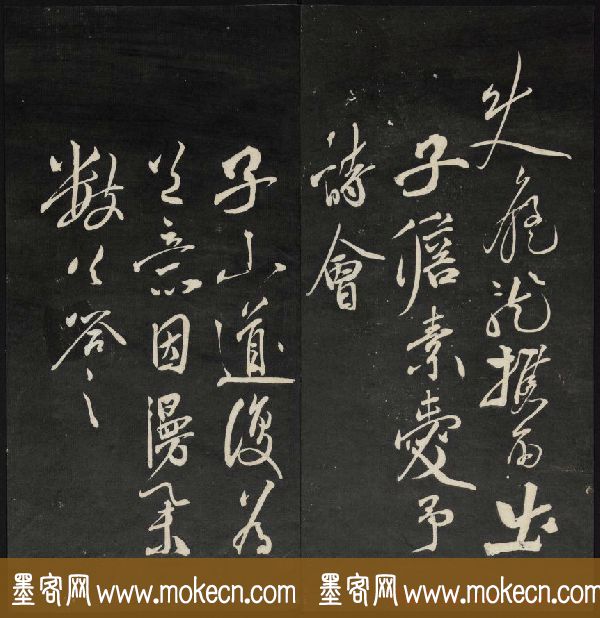 失出
子瞻素愛予
詩會
子山道復為
意因漫
數以答之
墨客网 www.mokecn.com 墨客网 www.mokecn.com